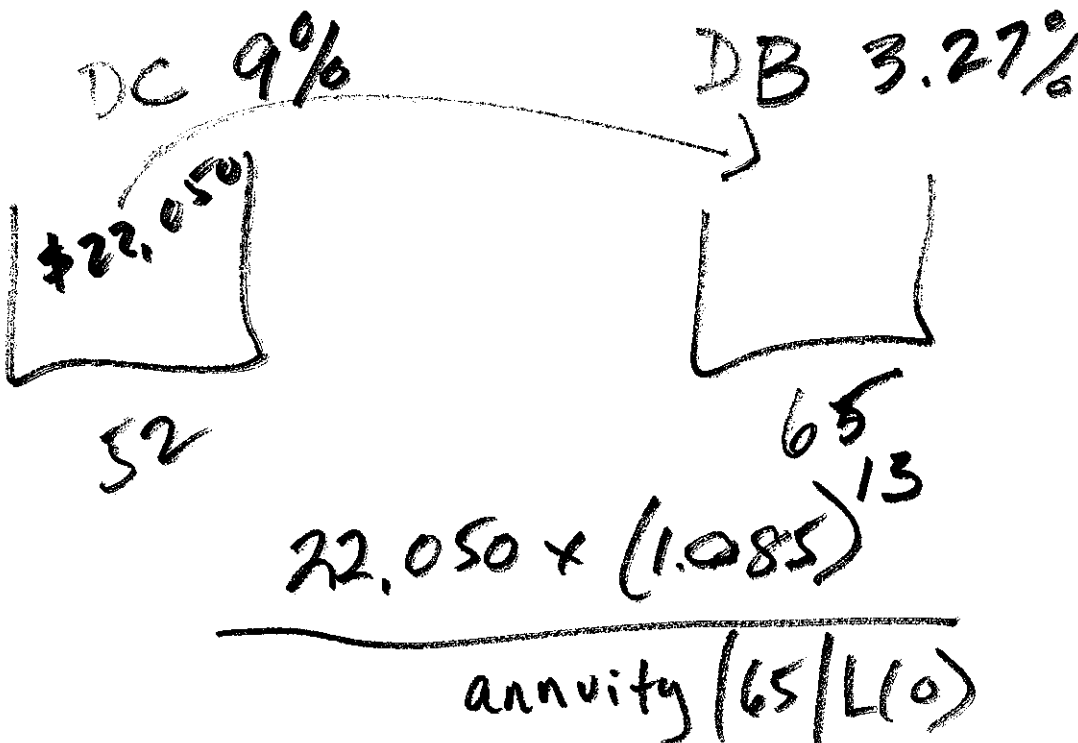 DC 9% DB 3.27%
$22,050
52 65
22,050 x (1.085)^13
annuity |65|L(0)